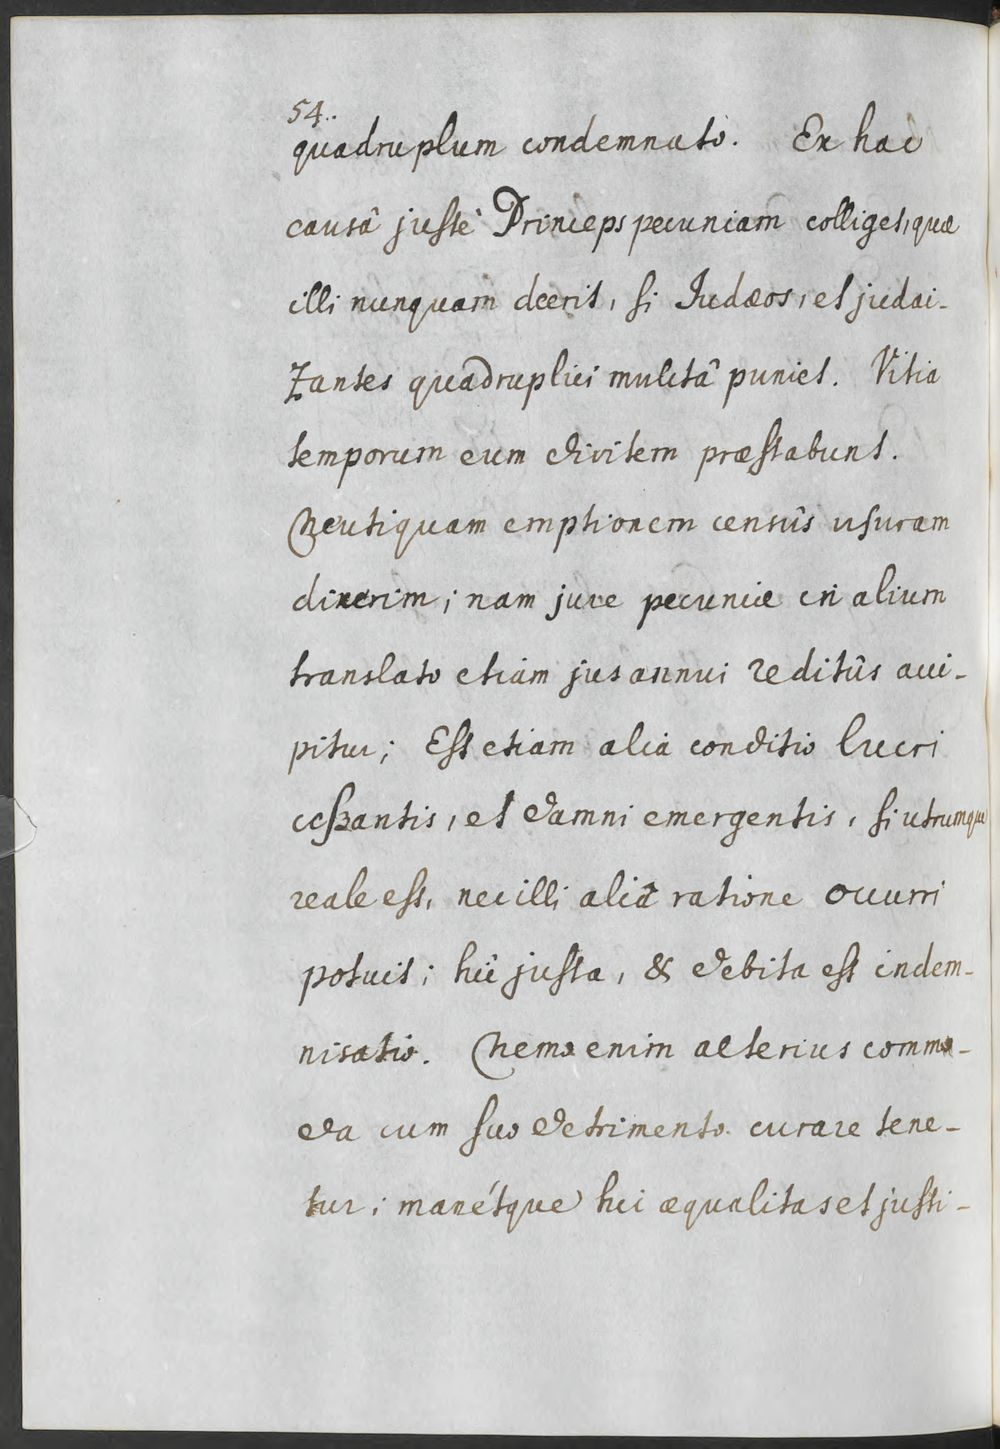 54.
quadruplum condemnato. Ex hac
causâ justè Princeps pecuniam colliget, quæ
illi nunquam deerit, si Iudæos, et judai-
Zantes quadruplici mulctâ puniet. Vitia
temporum eum divitem præstabunt.
Neutiquam emptionem censûs usuram
dixerim; nam jure pecuniæ in alium
translato etiam jus annui reditûs acci-
pitur; Est etiam alia conditio lucri
ceßantis, et damni emergentis, si utrumque
reale est, nec illi aliâ ratione occurri
potuit; hîc justa, & debita est indem-
nisatio. Nemo enim alterius commo-
da cum suo detrimento curare tene-
tur; manétque hic æqualitas et justi-